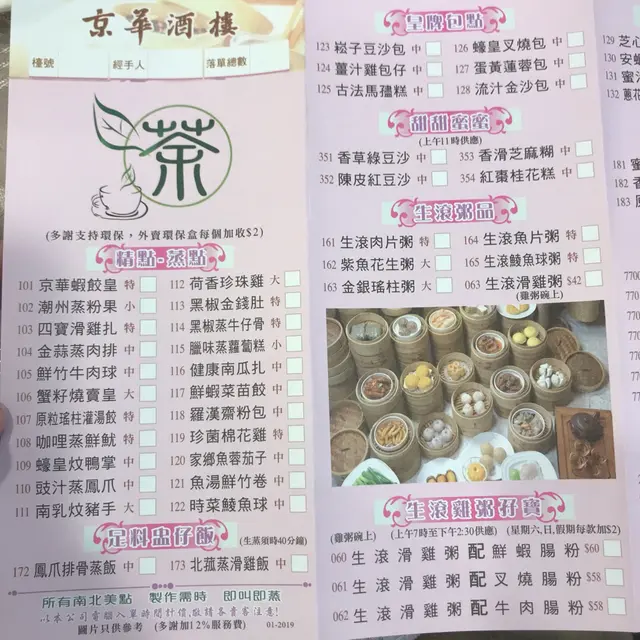 京華酒樓
檯號 經手人 落單總數
茶
(多謝支持環保，外賣環保盒每個加收$2)
精點·蒸點
101 京華蝦餃皇 特
102 潮州蒸粉果 小
103 四寶滑雞扎 特
104 金蒜蒸肉排 中
105 鮮竹牛肉球 中
106 蟹籽燒賣皇 大
107 原粒瑤柱灌湯餃 特
108 咖哩蒸鮮魷 特
109 蠔皇炆鴨掌 中
110 豉汁蒸鳳爪 中
111 南乳炆豬手 大
112 荷香珍珠雞 大
113 黑椒金錢肚 特
114 黑椒蒸牛仔骨 特
115 臘味蒸蘿蔔糕 小
116 健康南瓜扎 中
117 鮮蝦菜苗餃 中
118 羅漢齋粉包 中
119 珍菌棉花雞 特
120 家鄉魚蓉茄子 中
121 魚湯鮮竹卷 中
122 時菜鯪魚球 中
足料盅仔飯 (生蒸須時40分鐘)
172 鳳爪排骨蒸飯 中
173 北菰蒸滑雞飯 中
所有南北美點 製作需時 即叫即蒸
以本公司電腦入單時間計價,敬請各貴客注意!
圖片只供參考 (多謝加12%服務費) 01-2019
皇牌包點
123 崧子豆沙包 中
124 薑汁雞包仔 中
125 古法馬㼓糕 中
126 蠔皇叉燒包 中
127 蛋黃蓮蓉包 中
128 流汁金沙包 中
甜甜蜜蜜
(上午11時供應)
351 香草綠豆沙 中
352 陳皮紅豆沙 中
353 香滑芝麻糊 中
354 紅棗桂花糕 中
生滾粥品
161 生滾肉片粥 特
162 柴魚花生粥 大
163 金銀瑤柱粥 大
164 生滾魚片粥 特
165 生滾鯪魚球粥 特
063 生滾滑雞粥 $42
(雞粥碗上)
生滾雞粥孖寶
(雞粥碗上) (上午7時至下午2:30供應) (星期六,日,假期每款加$2)
060 生滾滑雞粥配鮮蝦腸粉 $60
061 生滾滑雞粥配叉燒腸粉 $58
062 生滾滑雞粥配牛肉腸粉 $58
129 芝心
130 安
131 蜜
132 蔥花
181
182
183
7700